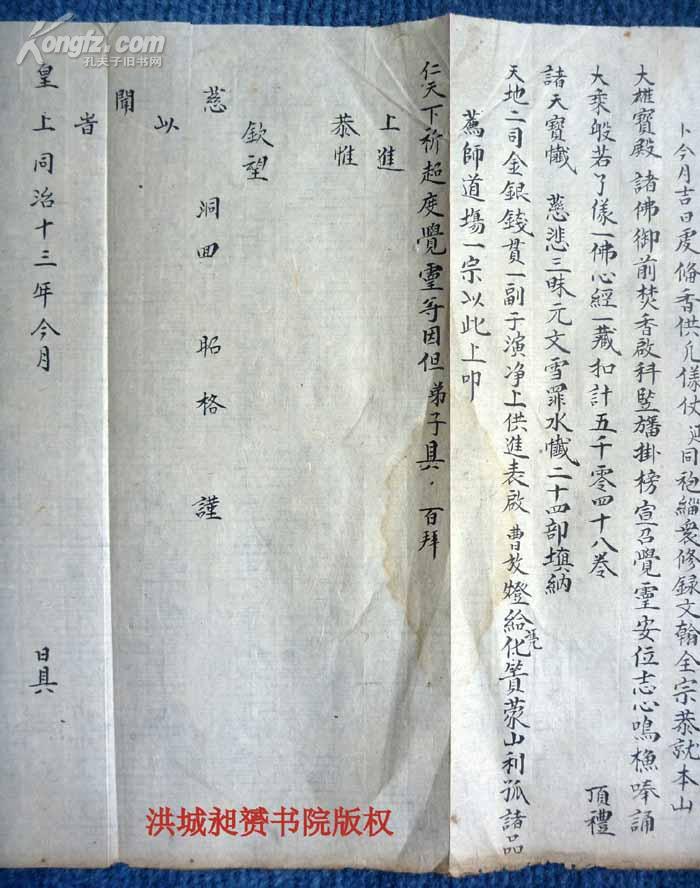 卜今月吉日虔俻香供凢儀仗具同袍緇衆修録文翰全宗恭就本山
大雄寶殿 諸佛御前焚香啟科豎旛掛榜宣召覺靈安位志心鳴樵奉誦
大乘般若了樣一佛心經一藏扣計五千零四十八卷 頂禮
諸天寶懺 慈悲三昧元文雪罪水懺二十四部填納
天地二司金銀錢貫一副于演净上供進表啟 曹放燈給化賫蒙山利孤諸品
薦師道場一宗以此上叩
仁天下祈超度覺靈等因但弟子具 百拜
上進
恭惟
欽望
慈 洞囬 昭格 謹
以
聞
旹
皇上同治十三年今月 日具
Kongfz.com
孔夫子旧书网
洪城昶赟书院版权